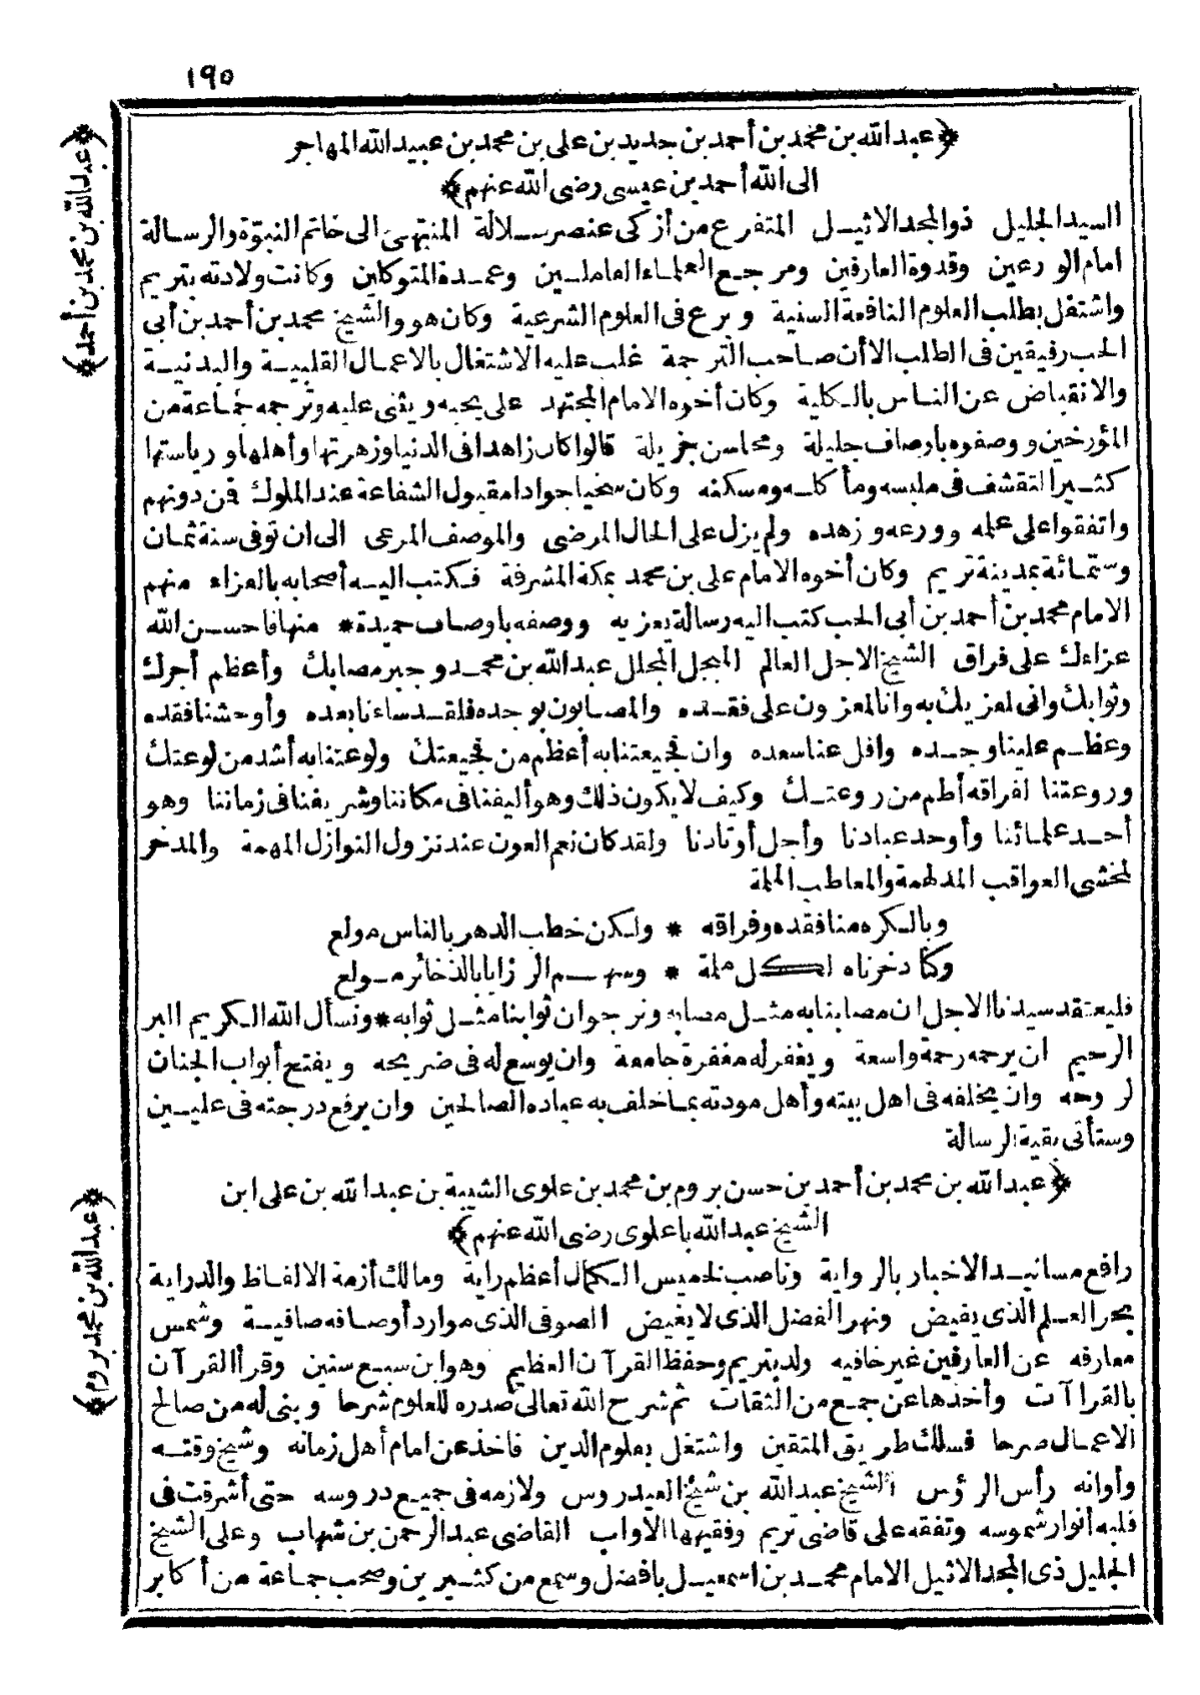 ١٩٥
﴿عبد الله بن محمد بن أحمد بن جديد بن على بن محمد بن عبيد الله المهاجر
الى الله أحمد بن عيسى رضى الله عنهم﴾
﴿عبد الله بن محمد بن أحمد﴾
السيد الجليل ذو المجد الاثيل المتفرع من أزكى عنصر سلالة المنتهى الى خاتم النبوّة والرسالة
امام الورعين وقدوة العارفين ومرجع العلماء العاملين وعمدة المتوكلين وكانت ولادته بتريم
واشتغل بطلب العلوم النافعة السنية وبرع فى العلوم الشرعية وكان هو والشيخ محمد بن أحمد بن أبى
الحب رفيقين فى الطلب الا أن صاحب الترجمة غلب عليه الاشتغال بالاعمال القلبية والبدنية
والانقباض عن الناس بالكلية وكان أخوه الامام المجتهد على يحبه ويثنى عليه وترجمه جماعة من
المؤرخين ووصفوه بأوصاف جليلة ومحاسن جزيلة قالوا كان زاهدا فى الدنيا وزهرتها وأهلها ورياستها
كثير التقشف فى ملبسه ومأكله ومسكنه وكان سخيا جوادا مقبول الشفاعة عند الملوك فمن دونهم
واتفقوا على علمه وورعه وزهده ولم يزل على الحال المرضى والموصف المرعى الى ان توفى سنة ثمان
وستمائة بمدينة تريم وكان أخوه الامام على بن محمد بمكة المشرفة فكتب اليه أصحابه بالعزاء منهم
الامام محمد بن أحمد بن أبى الحب كتب اليه رسالة يعزيه ووصفه باوصاف حميدة* منها فاحسن الله
عزاءك على فراق الشيخ الاجل العالم المبجل المجلل عبد الله بن محمد وجبر مصابك وأعظم أجرك
وثوابك وانى لمعزيك به وانا لمعزون على فقده والمصابون بوجده فلقد ساءنا بعده وأوحشنا فقده
وعظم علينا وجده وافل عنا سعده وان فجيعتنا به أعظم من فجيعتك ولوعتنا به أشد من لوعتك
وروعتنا لفراقه أطم من روعتك وكيف لا يكون ذلك وهو أليفنا فى مكاننا وشريفنا فى زماننا وهو
أحد علمائنا وأوحد عبادنا وأجل أوتادنا ولقد كان نعم العون عند نزول النوازل المهمة والمدخر
لمخشى العواقب المدلهمة والمعاطب الملمة
وبالكره منا فقده وفراقه * ولكن خطب الدهر بالناس مولع
وكنا دخرناه لكل ملمة * وسهم الرزايا بالذخائر مولع
فليعتقد سيدنا الاجل ان مصابنا به مثل مصابه ونرجو ان ثوابنا مثل ثوابه* ونسأل الله الكريم البر
الرحيم ان يرحمه رحمة واسعة ويغفر له مغفرة جامعة وان يوسع له فى ضريحه ويفتح أبواب الجنان
لروحه وان يخلفه فى اهل بيته وأهل مودته بما خلف به عباده الصالحين وان يرفع درجته فى عليين
وستأتى بقية الرسالة
﴿عبد الله بن محمد بن أحمد بن حسن بروم بن محمد بن علوى الشيبة بن عبد الله بن على ابن
الشيخ عبد الله باعلوى رضى الله عنهم﴾
﴿عبد الله بن محمد بروم﴾
رافع مسانيد الاخبار بالرواية وناصب لخميس الكمال أعظم راية ومالك أزمة الالفاظ والدراية
بحر العلم الذى يفيض ونهر الفضل الذى لا يغيض الصوفى الذى موارد أوصافه صافية وشمس
معارفه عن العارفين غير خافيه ولد بتريم وحفظ القرآن العظيم وهو ابن سبع سنين وقرأ القرآن
بالقراآت وأخذها عن جمع من الثقات ثم شرح الله تعالى صدره للعلوم شرحا وبنى له من صالح
الاعمال صرحا فسلك طريق المتقين واشتغل بعلوم الدين فاخذ عن امام أهل زمانه وشيخ وقته
وأوانه رأس الرؤس الشيخ عبد الله بن شيخ العيدروس ولازمه فى جميع دروسه حتى أشرقت فى
قلبه أنوار شموسه وتفقه على قاضى تريم وفقيهها الاواب القاضى عبد الرحمن بن شهاب وعلى الشيخ
الجليل ذى المجد الاثيل الامام محمد بن اسمعيل بافضل وسمع من كثيرين وصحب جماعة من أكابر